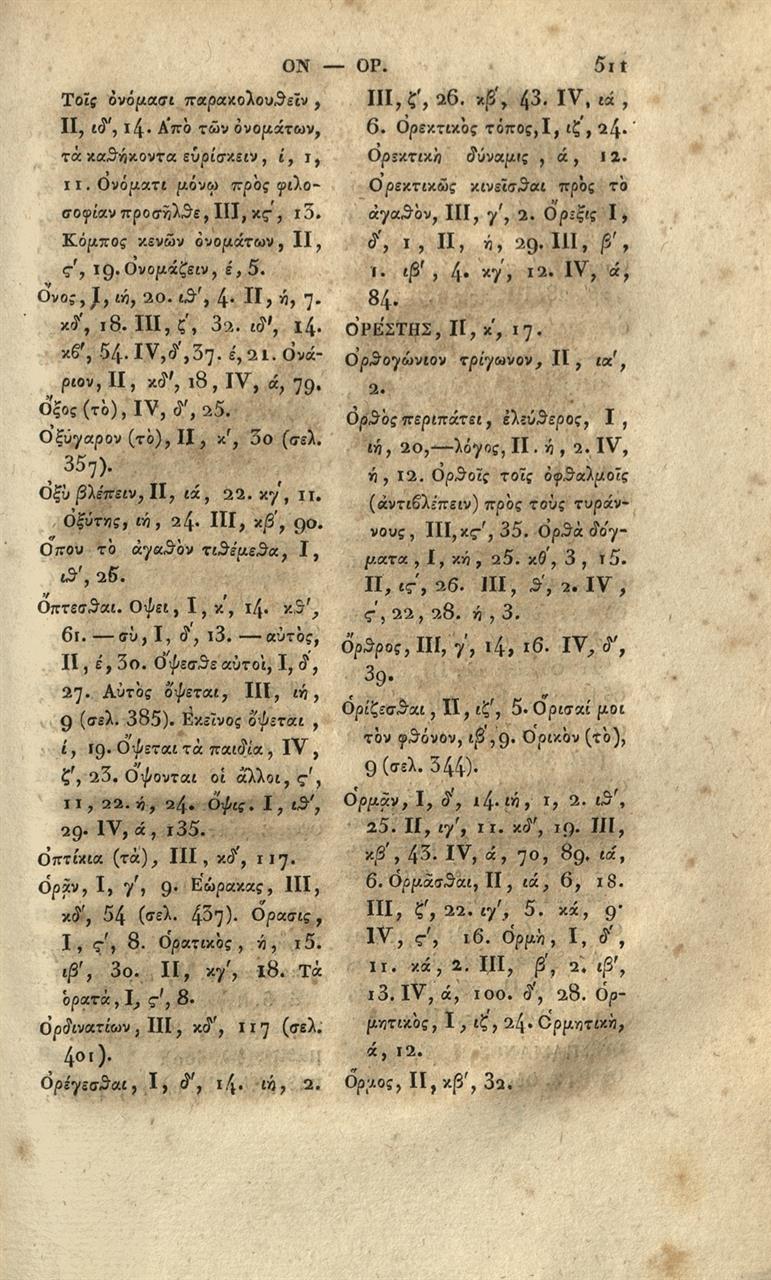 ΟΝ — ΟΡ. 511
Τοῖς ὀνόμασι παρακολουθεῖν,
II, ιδ', 14. Ἀπὸ τῶν ὀνομάτων,
τὰ καθήκοντα εὑρίσκειν, ί, 1,
11. Ὀνόματι μόνῳ πρὸς φιλο-
σοφίαν προσῆλθε, III, κϛ', 13.
Κόμπος κενῶν ὀνομάτων, II,
ϛ', 19. Ὀνομάζειν, έ, 5.
Ὄνος, I, ιή, 20. ιθ', 4. II, ή, 7.
κδ', 18. III, ζ', 32. ιδ', 14.
κϐ', 54. IV, δ', 37. έ, 21. Ὀνά-
ριον, II, κδ', 18, IV, ά, 79.
Ὄξος (τὸ), IV, δ', 25.
Ὀξύγαρον (τὸ), II, κ', 30 (σελ.
357).
Ὀξὺ βλέπειν, II, ιά, 22. κγ', 11.
Ὀξύτης, ιή, 24. III, κβ', 90.
Ὅπου τὸ ἀγαθὸν τιθέμεθα, I,
ιθ', 26.
Ὄπτεσθαι. Ὄψει, I, κ', 14. κθ',
61. — σὺ, I, δ', 13. — αὐτὸς,
II, έ, 30. Ὄψεσθε αὐτοὶ, I, δ',
27. Αὐτὸς ὄψεται, III, ιή,
9 (σελ. 385). Ἐκεῖνος ὄψεται,
ί, 19. Ὄψεται τὰ παιδία, IV,
ζ', 23. Ὄψονται οἱ ἄλλοι, ϛ',
11, 22. ή, 24. Ὄψις. I, ιθ',
29. IV, ά, 135.
Ὀπτίκια (τὰ), III, κδ', 117.
Ὁρᾷν, I, γ', 9. Ἑώρακας, III,
κδ', 54 (σελ. 437). Ὅρασις,
I, ϛ', 8. Ὁρατικὸς, ή, 15.
ιβ', 30. II, κγ', 18. Τὰ
ὁρατὰ, I, ϛ', 8.
Ὀρδινατίων, III, κδ', 117 (σελ.
401).
Ὀρέγεσθαι, I, δ', 14. ιή, 2.
III, ζ', 26. κβ', 43. IV, ιά,
6. Ὀρεκτικὸς τόπος, I, ιζ', 24.
Ὀρεκτικὴ δύναμις, ά, 12.
Ὀρεκτικῶς κινεῖσθαι πρὸς τὸ
ἀγαθὸν, III, γ', 2. Ὄρεξις I,
δ', 1, II, ή, 29. III, β',
1. ιβ', 4. κγ', 12. IV, ά,
84.
ὈΡΕΣΤΗΣ, II, κ', 17.
Ὀρθογώνιον τρίγωνον, II, ια',
2.
Ὀρθὸς περιπάτει, ἐλεύθερος, I,
ιή, 20, — λόγος, II. ή, 2. IV,
ή, 12. Ὀρθοῖς τοῖς ὀφθαλμοῖς
(ἀντιϐλέπειν) πρὸς τοὺς τυράν-
νους, III, κϛ', 35. Ὀρθὰ δόγ-
ματα, I, κή, 25. κθ', 3, 15.
II, ιϛ', 26. III, θ', 2. IV,
ϛ', 22, 28. ή, 3.
Ὄρθρος, III, γ', 14, 16. IV, δ',
39.
Ὁρίζεσθαι, II, ιζ', 5. Ὅρισαί μοι
τὸν φθόνον, ιβ', 9. Ὁρικὸν (τὸ),
9 (σελ. 344).
Ὁρμᾷν, I, δ', 14. ιή, 1, 2. ιθ',
25. II, ιγ', 11. κδ', 19. III,
κβ', 43. IV, ά, 70, 89. ιά,
6. Ὁρμᾶσθαι, II, ιά, 6, 18.
III, ζ', 22. ιγ', 5. κά, 9·
IV, ϛ', 16. Ὁρμὴ, I, δ',
11. κά, 2. III, β', 2. ιβ',
13. IV, ά, 100. δ', 28. Ὁρ-
μητικὸς, I, ιζ', 24. Ὁρμητικὴ,
ά, 12.
Ὅρμος, II, κβ', 32.